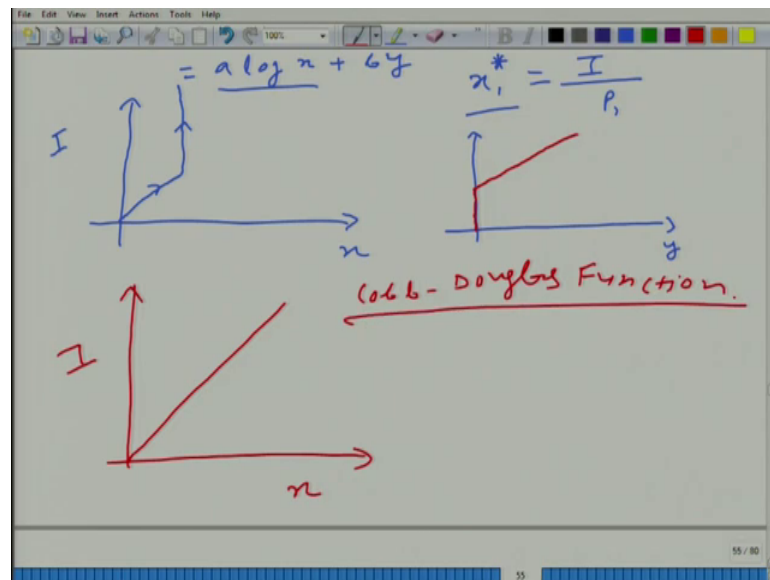 File Edit View Insert Actions Tools Help
100%
B I
= a log x + by
x₁* = I / P₁
I
x
y
Cobb-Douglas Function.
I
x
55 / 80
55